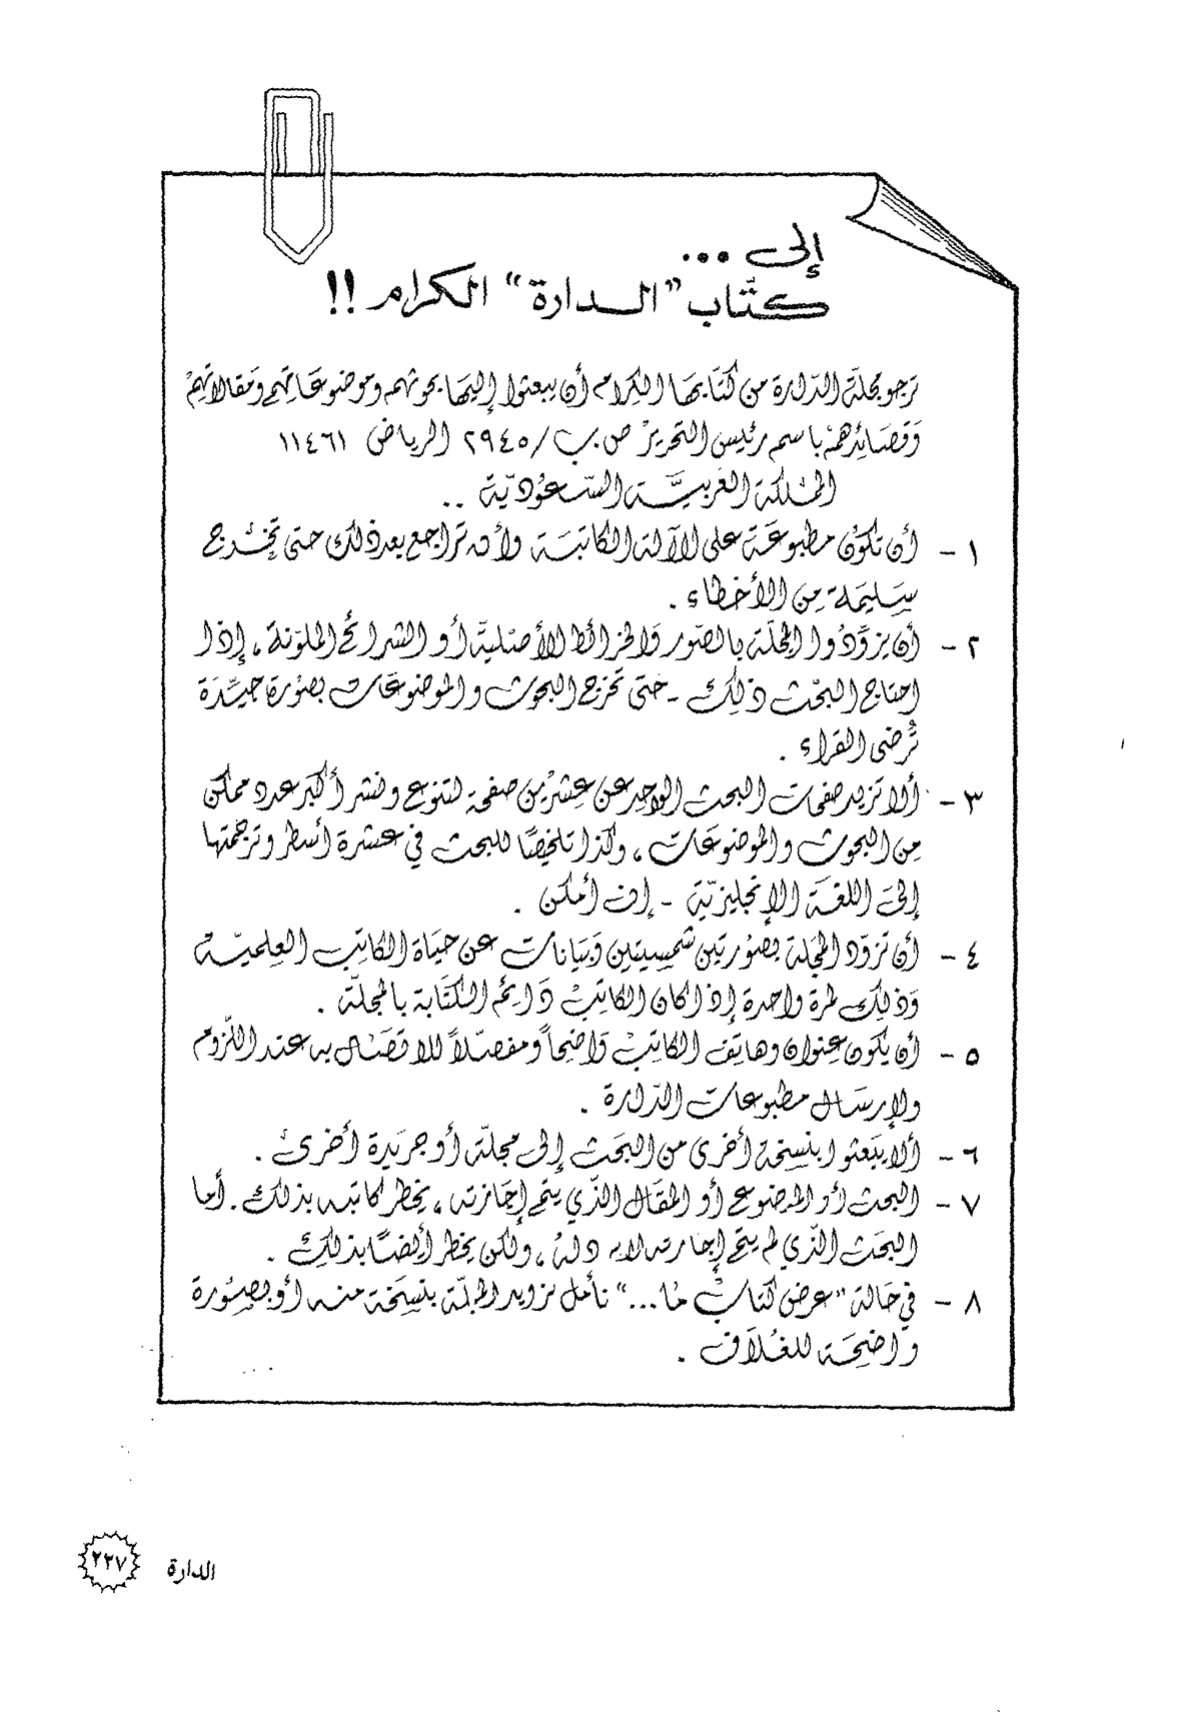 إلى ...
كتّاب "الدارة" الكرام !!
ترجو مجلة الدّارة من كتّابها الكرام أن يبعثوا إليها بحوثهم وموضوعاتهم ومقالاتهم
وقصائدهم باسم رئيس التحرير ص.ب/٢٩٤٥ الرياض ١١٤٦١
المملكة العربيّة السّعوديّة ..
١ - أن تكون مطبوعة على الآلة الكاتبة ولأن تراجع بعد ذلك حتى تخرج
سليمة من الأخطاء .
٢ - أن يزوّدوا المجلّة بالصّور والخرائط الأصليّة أو الشرائح الملوّنة ، إذا
احتاج البحث ذلك - حتى تخرج البحوث والموضوعات بصورة جيّدة
تُرضى القراء .
٣ - ألا تزيد صفحات البحث الواحد عن عشرين صفحة لتنوع ونشر أكبر عدد ممكن
من البحوث والموضوعات ، وكذا تلخيصًا للبحث في عشرة أسطر وترجمتها
إلى اللغة الإنجليزيّة - إن أمكن .
٤ - أن تزوّد المجلة بصورتين شمسيتين وبيانات عن حياة الكاتب العلميّة
وذلك لمرة واحدة إذا كان الكاتب دائم الكتابة بالمجلّة .
٥ - أن يكون عنوان وهاتف الكاتب واضحاً ومفصّلاً للاتصال به عند اللّزوم
ولإرسال مطبوعات الدّارة .
٦ - ألا يبعثوا بنسخة أخرى من البحث إلى مجلّة أو جريدة أخرى .
٧ - البحث أو الموضوع أو المقال الذّي يتم إجازته ، يخطر كاتبه بذلك . أما
البحث الذّي لم يتم إجازته لا ، ولكن يخطر أيضًا بذلك .
٨ - في حالة "عرض كتاب مُا ..." نأمل تزويد المجلّة بنسخة منه أو بصورة
واضحة للغلاف .
الدارة ٢٢٧